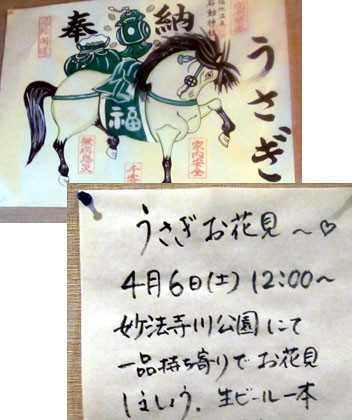 奉納
うさぎ
石動神社
福
家内安全
無病息災
うさぎお花見〜♡
4月6日(土) 12:00〜
妙法寺川公園にて
一品持ち寄りでお花見
しましょう。生ビール一本